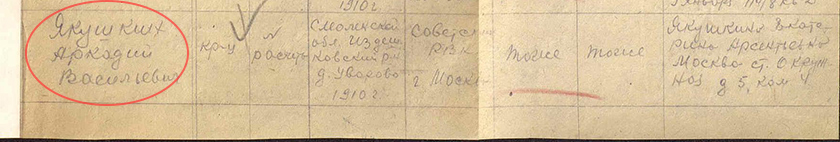 1910 г
Якушких
Аркадий
Васильевич
кр-ц
Смоленска
обл. Издеш
ковский р-н
д. Уварово
1910 г
Советский
РВК
г. Москв
тоже
тоже
Якушкина Екате
рина Арсентьевна
Москва ст. Окруж
ная д 5, ком 4